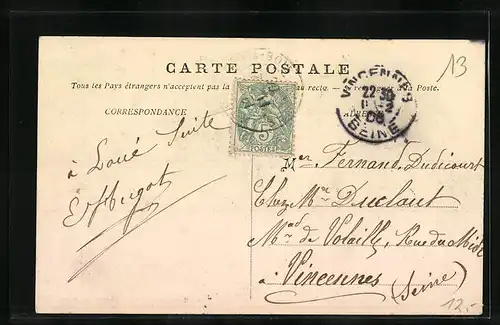 13
CARTE POSTALE
Tous les Pays étrangers n'acceptent pas la au recto. à la Poste.
CORRESPONDANCE
VINCENNES
22 30
SEINE
5
POSTES
à Loué Suite
Mer Fernand Dudicourt
Chez Mr Duclout
Md de Volaille, Rue du Midi
à Vincennes
(Seine)
12.-